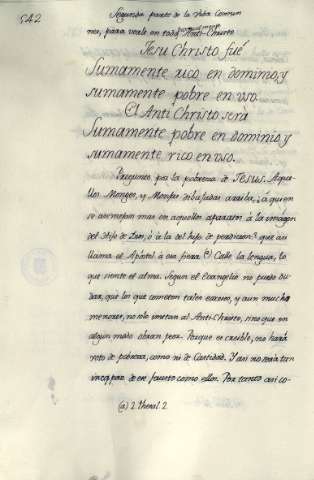 542
Segunda parte de la Vida Comun
mos, para verle en todo Anti-Christo
Jesu Christo fué
Sumamente rico en dominio, y
sumamente pobre en uso.
El Anti Christo será
Sumamente pobre en dominio, y
sumamente rico en uso.
Pregunto por la pobreza de JESUS. Aque-
llos Monges, y Monjas enbasadas arriba, ¿a quien
se asemejan mas con aquellos aparatos: à la imagen
del Hijo de Dios, ò à la del hijo de perdicion? que asi
llama el Apóstol à esa fiera. (a) Calle la lengua, lo
que siente el alma. Segun el Evangelio no puedo du-
dar, que los que cometen tales excesos, y aun mucho
menores, no solo imitan al Anti-Christo, sino que en
algun modo obran peor. Porque es creible, no hará
voto de pobreza, como ni de Castidad. Y asi no será tan
incapaz de en fausto como ellos. Por tanto asi co-
(a) 2. Thesal. 2.